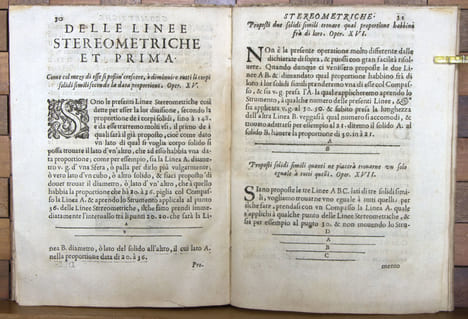 30
DELLE LINEE
STEREOMETRICHE
ET PRIMA
Come col mezo di esse si possin' crescere, ò diminuire tutti li corpi
solidi simili secondo la data proportione. Oper. XV.
SOno le presenti Linee Stereometriche così
dette per esser la lor diuisione, secondo la
proportione de i corpi solidi, sino à 148.
& da esse trarremo molti vsi, il primo de
i quali sarà il proposto, cioè come dato
vn lato di qual si voglia corpo solido si
possa trouare il lato d'vn'altro, che ad esso habbia vna da-
ta proportione; come per esempio, sia la Linea A. diame-
tro v. g. d'vna sfera, ò palla per dirlo più vulgarmente;
ò vero lato d'vn cubo, ò altro solido, & siaci proposto di
douer trouar il diametro, ò lato d'vn'altro, che à quello
habbia la proportione che hà 20. à 36. piglia col Compas-
so la Linea A. & aprendo lo Strumento applicala al punto
36. delle Linee Stereometriche, il che fatto prendi imme-
diatamente l'interuallo frà li punti 20. 20. che sarà la Li-
A
B
nea B. diametro, ò lato del solido all'altro, il cui lato A.
nella proportione data di 20. à 36.
Pro-
STEREOMETRICHE.
31
Proposti due solidi simili trouare qual proportione habbino
frà di loro. Oper. XVI.
NOn è la presente operatione molto differente dalle
dichiarate di sopra, & puossi con gran facilità risol-
uere. Quando dunque ci venissero proposte le due Li-
nee A B. & dimandato qual proportione habbino frà di
loro i lor solidi simili prenderemo vna di esse col Compas-
so, & sia v. g. presa l'A. la quale applicheremo aprendo lo
Strumento, à qualche numero di esse presenti Linee, & sia
applicata v. g. al 50. 50. & subito presa la lunghezza
dell'altra Linea B. veggasi à qual numero si accomodi, &
trouato adattarsi per esempio al 21. diremo il solido A. al
solido B. hauere la proportione di 50. in à 21.
A
B
Proposti solidi simili quanti ne piacerà trouarne vn solo
eguale à tutti quelli. Oper. XVII.
SIano proposte le tre Linee A B C. lati di tre solidi simi-
li, vogliamo trouarne vno eguale à tutti quelli, per
il che fare, prendasi con vn Compasso la Linea A. la qua-
le s'applichi à qualche punto delle Linee Stereometriche, &
sia per esempio al punto 30. & non mouendo lo Stru-
D
A
B
C
mento